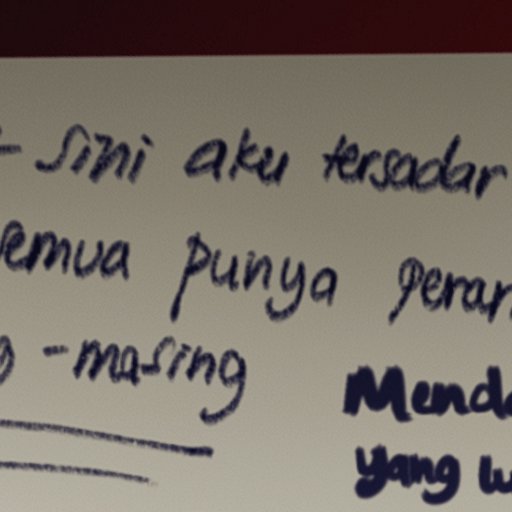 - Sini aku tersadar
semua punya peran
-masing
Menda
yang w